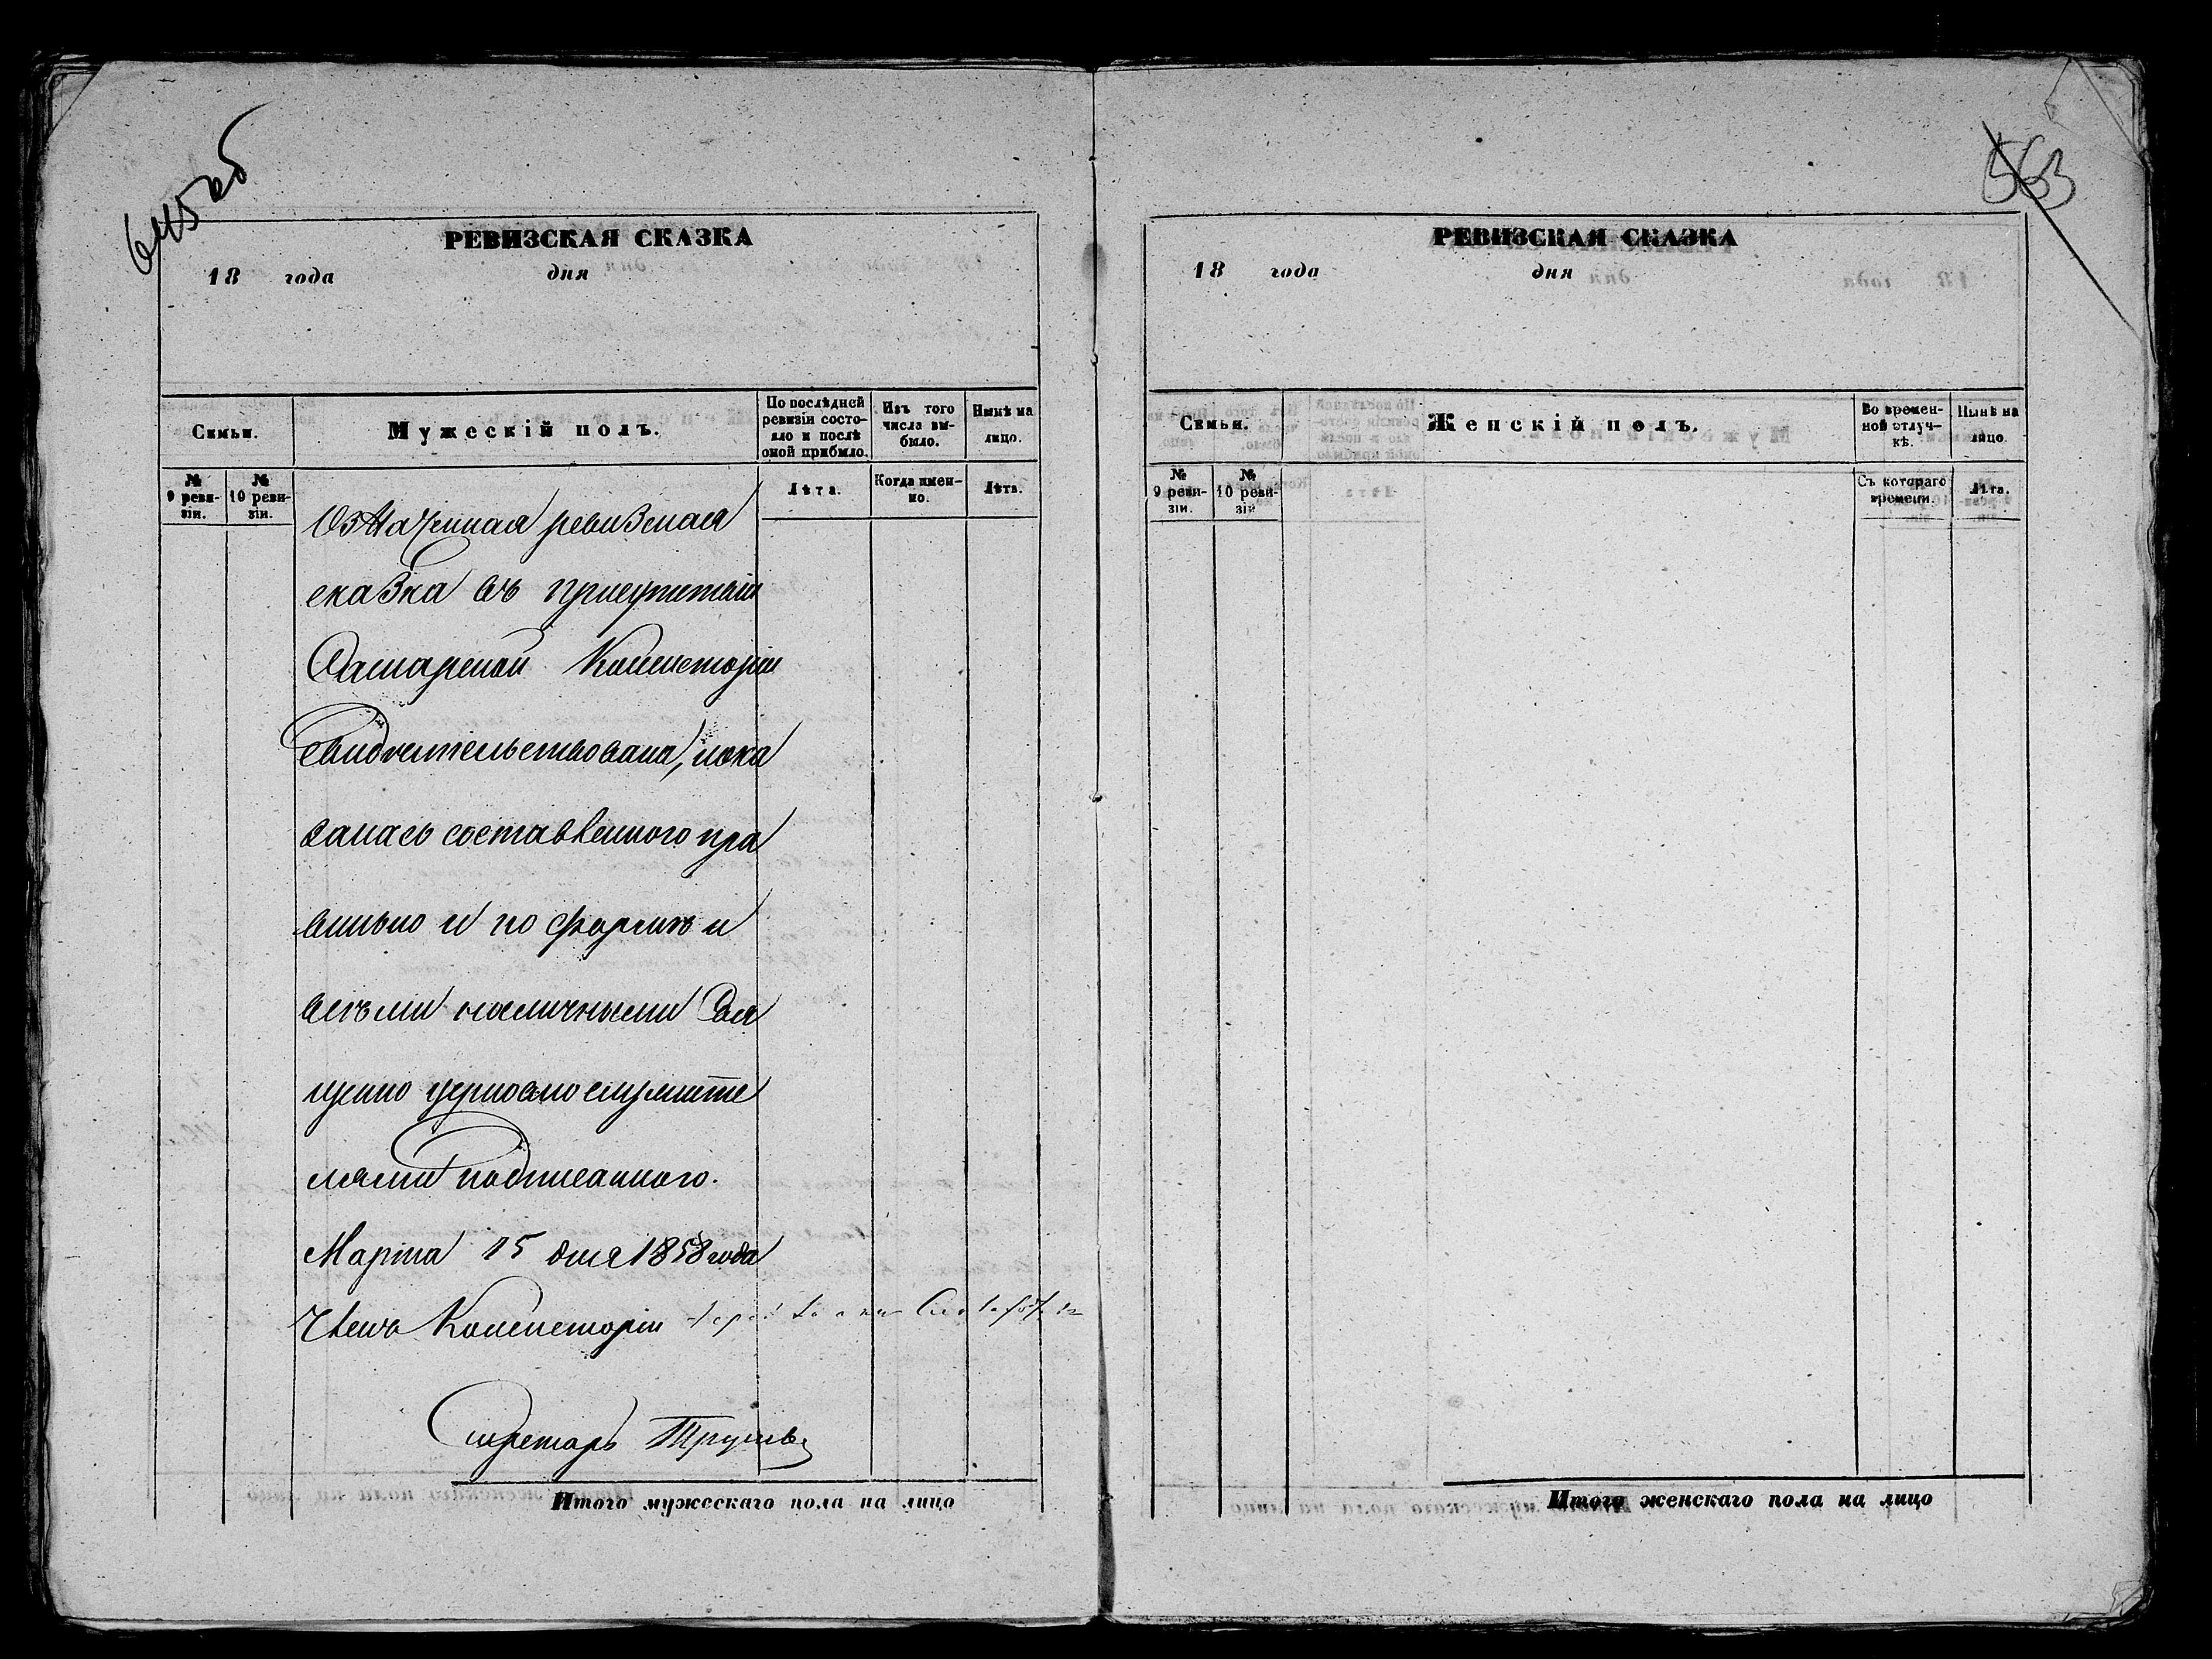 645 об
РЕВИЗСКАЯ СКАЗКА
18 года дня
Семьи.
Мужескій полъ.
По послѣдней ревизіи состояло и послѣ оной прибыло.
Изъ того числа выбыло.
Нынѣ на лицо.
№ 9 ревизіи.
№ 10 ревизіи.
Лѣта.
Когда именно.
Лѣта.
Означенная ревизская
сказка въ присутствіи
Самарской Консисторіи
свидѣтельствована, пока
залась составленного пра
вильно и по формѣ и
всѣми наличными Свя
щенно церковно служите
лями подписанного.
Марта 15 дня 1858 года
Членъ Консисторіи
Секретарь
Итого мужескаго пола на лицо
563
РЕВИЗСКАЯ СКАЗКА
18 года дня
Семьи.
Женскій полъ.
Во временной отлучкѣ.
Нынѣ на лицо.
№ 9 ревизіи.
№ 10 ревизіи
Съ котораго времени.
Лѣта.
Итого женскаго пола на лицо